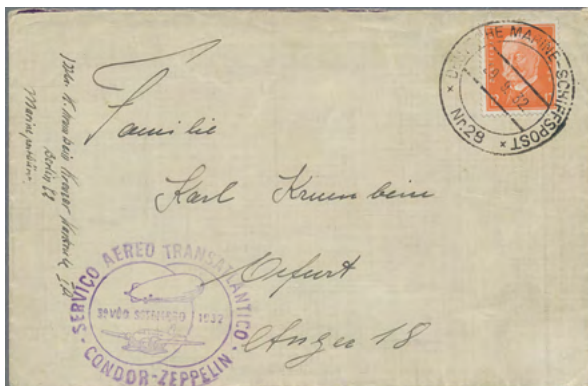 DEUTSCHE MARINE-SCHIFFSPOST
Nr. 29
Familie
Karl Krumbein
Erfurt
Anger 18
Berlin
SERVIÇO AEREO TRANSATLANTICO
3º VÔO SETEMBRO 1932
CONDOR-ZEPPELIN